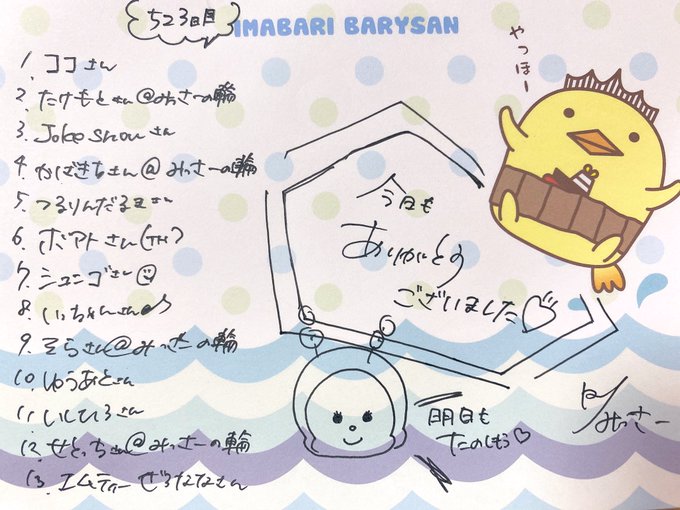 523日目
IMABARI BARYSAN
やっほー
1. ココさん
2. たけもとさん@みっさーの輪
3. Joke Showさん
4. かばざきちさん@みっさーの輪
5. つるりんだるまさん
6. ポアトさん(TH)
7. シュニゴさん
8. いっちゃんさん
9. そらさん@みっさーの輪
10. ゆうあとさん
11. いしひろさん
12. せとっちさん@みっさーの輪
13. エムティーぜろななさん
今日も
ありがとう
ございました♡
明日も
たのしもう♡
みっさー